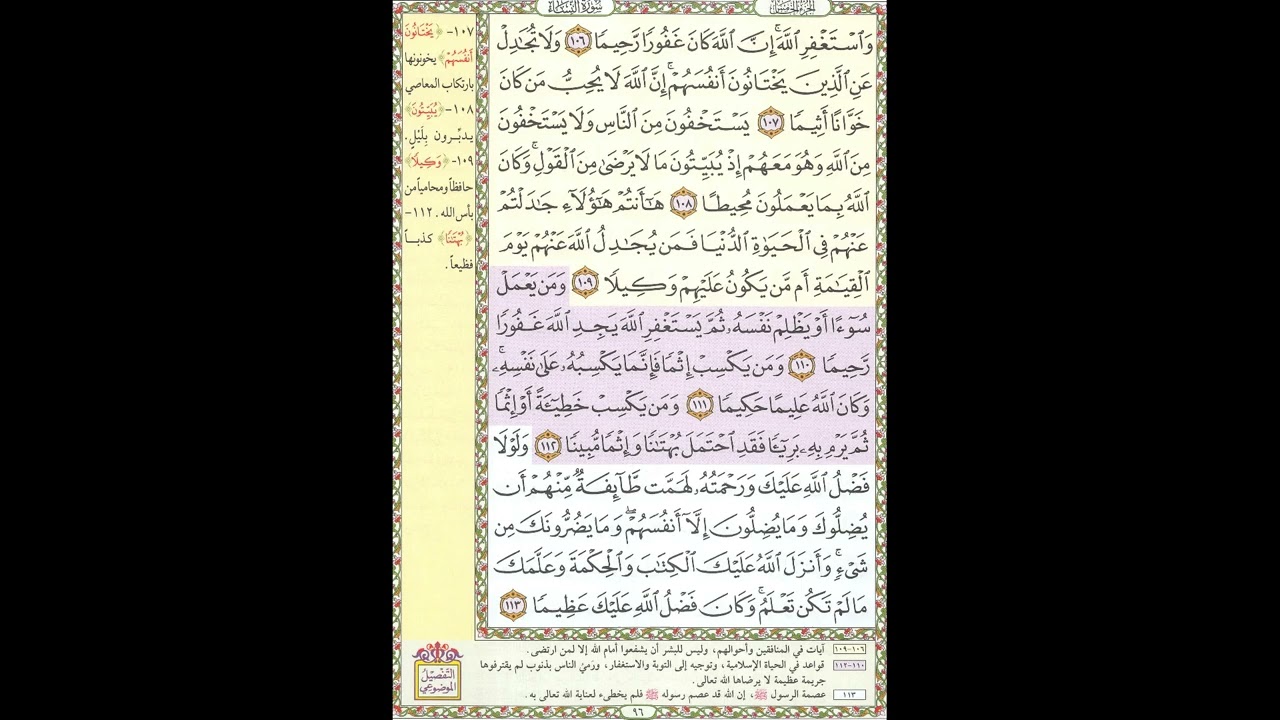 سُورَةُ النِّسَاءِ
الجزء الخامس
وَٱسْتَغْفِرِ ٱللَّهَ ۖ إِنَّ ٱللَّهَ كَانَ غَفُورًا رَّحِيمًا ١٠٦ وَلَا تُجَٰدِلْ
عَنِ ٱلَّذِينَ يَخْتَانُونَ أَنفُسَهُمْ ۚ إِنَّ ٱللَّهَ لَا يُحِبُّ مَن كَانَ
خَوَّانًا أَثِيمًا ١٠٧ يَسْتَخْفُونَ مِنَ ٱلنَّاسِ وَلَا يَسْتَخْفُونَ
مِنَ ٱللَّهِ وَهُوَ مَعَهُمْ إِذْ يُبَيِّتُونَ مَا لَا يَرْضَىٰ مِنَ ٱلْقَوْلِ ۚ وَكَانَ
ٱللَّهُ بِمَا يَعْمَلُونَ مُحِيطًا ١٠٨ هَٰٓأَنتُمْ هَٰٓؤُلَآءِ جَٰدَلْتُمْ
عَنْهُمْ فِى ٱلْحَيَوٰةِ ٱلدُّنْيَا فَمَن يُجَٰدِلُ ٱللَّهَ عَنْهُمْ يَوْمَ
ٱلْقِيَٰمَةِ أَم مَّن يَكُونُ عَلَيْهِمْ وَكِيلًا ١٠٩ وَمَن يَعْمَلْ
سُوٓءًا أَوْ يَظْلِمْ نَفْسَهُۥ ثُمَّ يَسْتَغْفِرِ ٱللَّهَ يَجِدِ ٱللَّهَ غَفُورًا
رَّحِيمًا ١١٠ وَمَن يَكْسِبْ إِثْمًا فَإِنَّمَا يَكْسِبُهُۥ عَلَىٰ نَفْسِهِۦ ۚ
وَكَانَ ٱللَّهُ عَلِيمًا حَكِيمًا ١١١ وَمَن يَكْسِبْ خَطِيٓـَٔةً أَوْ إِثْمًا
ثُمَّ يَرْمِ بِهِۦ بَرِيٓـًٔا فَقَدِ ٱحْتَمَلَ بُهْتَٰنًا وَإِثْمًا مُّبِينًا ١١٢ وَلَوْلَا
فَضْلُ ٱللَّهِ عَلَيْكَ وَرَحْمَتُهُۥ لَهَمَّت طَّآئِفَةٌ مِّنْهُمْ أَن
يُضِلُّوكَ وَمَا يُضِلُّونَ إِلَّآ أَنفُسَهُمْ ۖ وَمَا يَضُرُّونَكَ مِن
شَىْءٍ ۚ وَأَنزَلَ ٱللَّهُ عَلَيْكَ ٱلْكِتَٰبَ وَٱلْحِكْمَةَ وَعَلَّمَكَ
مَا لَمْ تَكُن تَعْلَمُ ۚ وَكَانَ فَضْلُ ٱللَّهِ عَلَيْكَ عَظِيمًا ١١٣
١٠٧- ﴿يَخْتَانُونَ
أَنفُسَهُمْ﴾ يخونونها
بارتكاب المعاصي
١٠٨- ﴿يُبَيِّتُونَ﴾
يدبِّرون بِلَيْلٍ.
١٠٩- ﴿وَكِيلًا﴾
حافظاً ومحامياً من
بأس الله. ١١٢-
﴿بُهْتَٰنًا﴾ كذبـاً
فظيعاً.
التفصيل
الموضوعي
١٠٦-١٠٩ آيات في المنافقين وأحوالهم، وليس للبشر أن يشفعوا أمام الله إلا لمن ارتضى.
١١٠-١١٢ قواعد في الحياة الإسلامية، وتوجيه إلى التوبة والاستغفار، ورَمْيُ الناس بذنوب لم يقترفوها
جريمة عظيمة لا يرضاها الله تعالى.
١١٣ عصمة الرسول ﷺ، إن الله قد عصم رسوله ﷺ فلم يخطىء لعناية الله تعالى به.
٩٦